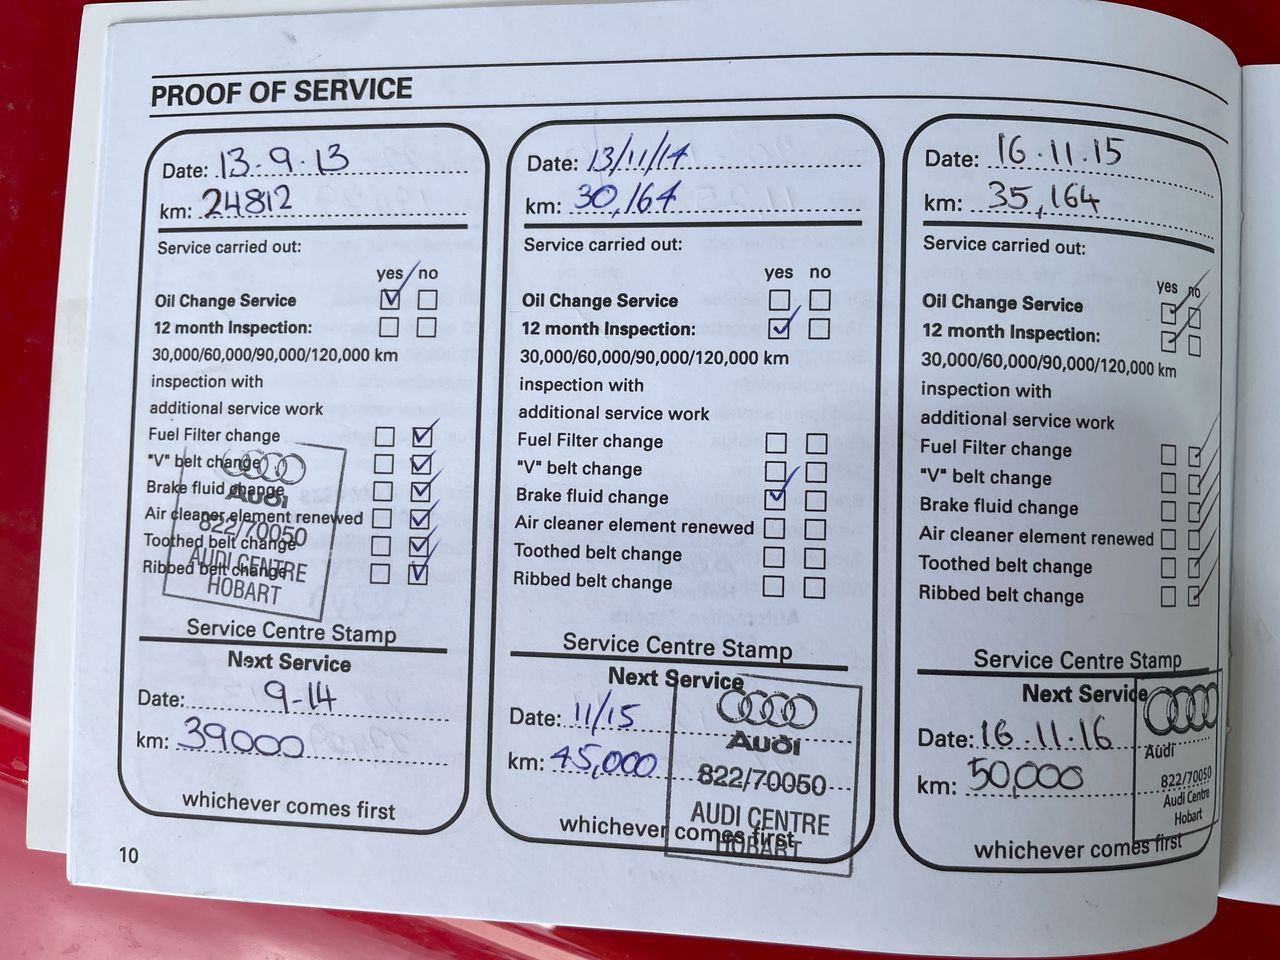 PROOF OF SERVICE
Date: 13.9.13
km: 24812
Service carried out:
yes no
Oil Change Service
12 month Inspection:
30,000/60,000/90,000/120,000 km
inspection with
additional service work
Fuel Filter change
"V" belt change
Brake fluid change
Air cleaner element renewed
Toothed belt change
Ribbed belt change
Audi
822/70050
AUDI CENTRE
HOBART
Service Centre Stamp
Next Service
Date: 9-14
km: 39000
whichever comes first
10
Date: 13/11/14
km: 30,164
Service carried out:
yes no
Oil Change Service
12 month Inspection:
30,000/60,000/90,000/120,000 km
inspection with
additional service work
Fuel Filter change
"V" belt change
Brake fluid change
Air cleaner element renewed
Toothed belt change
Ribbed belt change
Service Centre Stamp
Next Service
Date: 11/15
km: 45,000
whichever comes first
Audi
822/70050
AUDI CENTRE
HOBART
Date: 16.11.15
km: 35,164
Service carried out:
yes no
Oil Change Service
12 month Inspection:
30,000/60,000/90,000/120,000 km
inspection with
additional service work
Fuel Filter change
"V" belt change
Brake fluid change
Air cleaner element renewed
Toothed belt change
Ribbed belt change
Service Centre Stamp
Next Service
Date: 16.11.16
km: 50,000
whichever comes first
Audi
822/70050
Audi Centre
Hobart